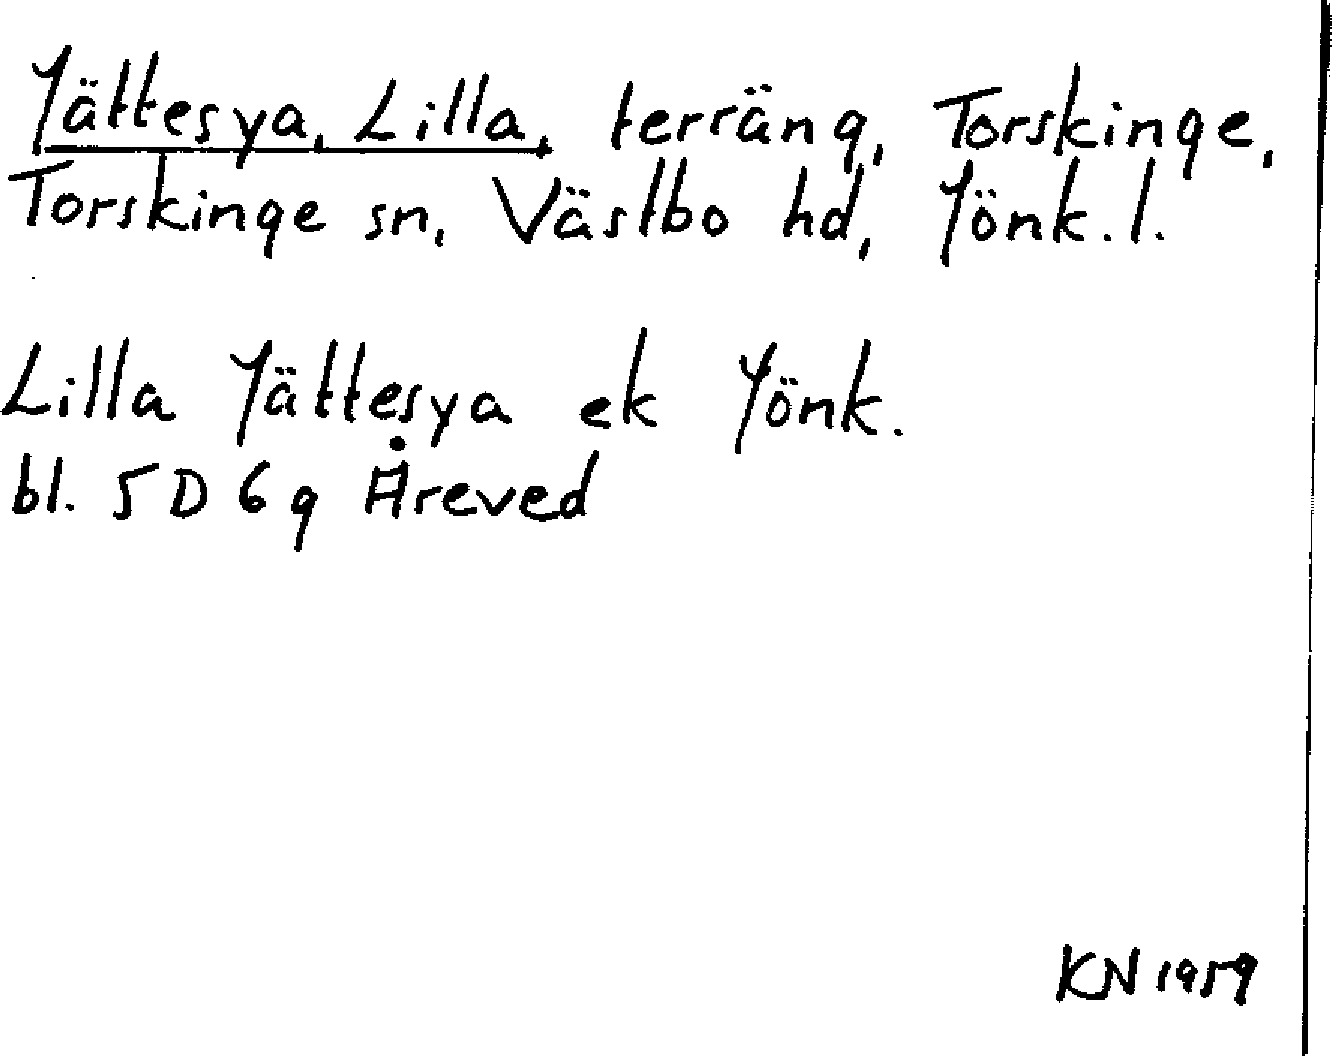 Jättesya, Lilla, terräng, Torskinge,
Torskinge sn, Västbo hd, Jönk. l.
Lilla Jättesya ek Jönk.
bl. 5D 6g Åreved
KN 1959